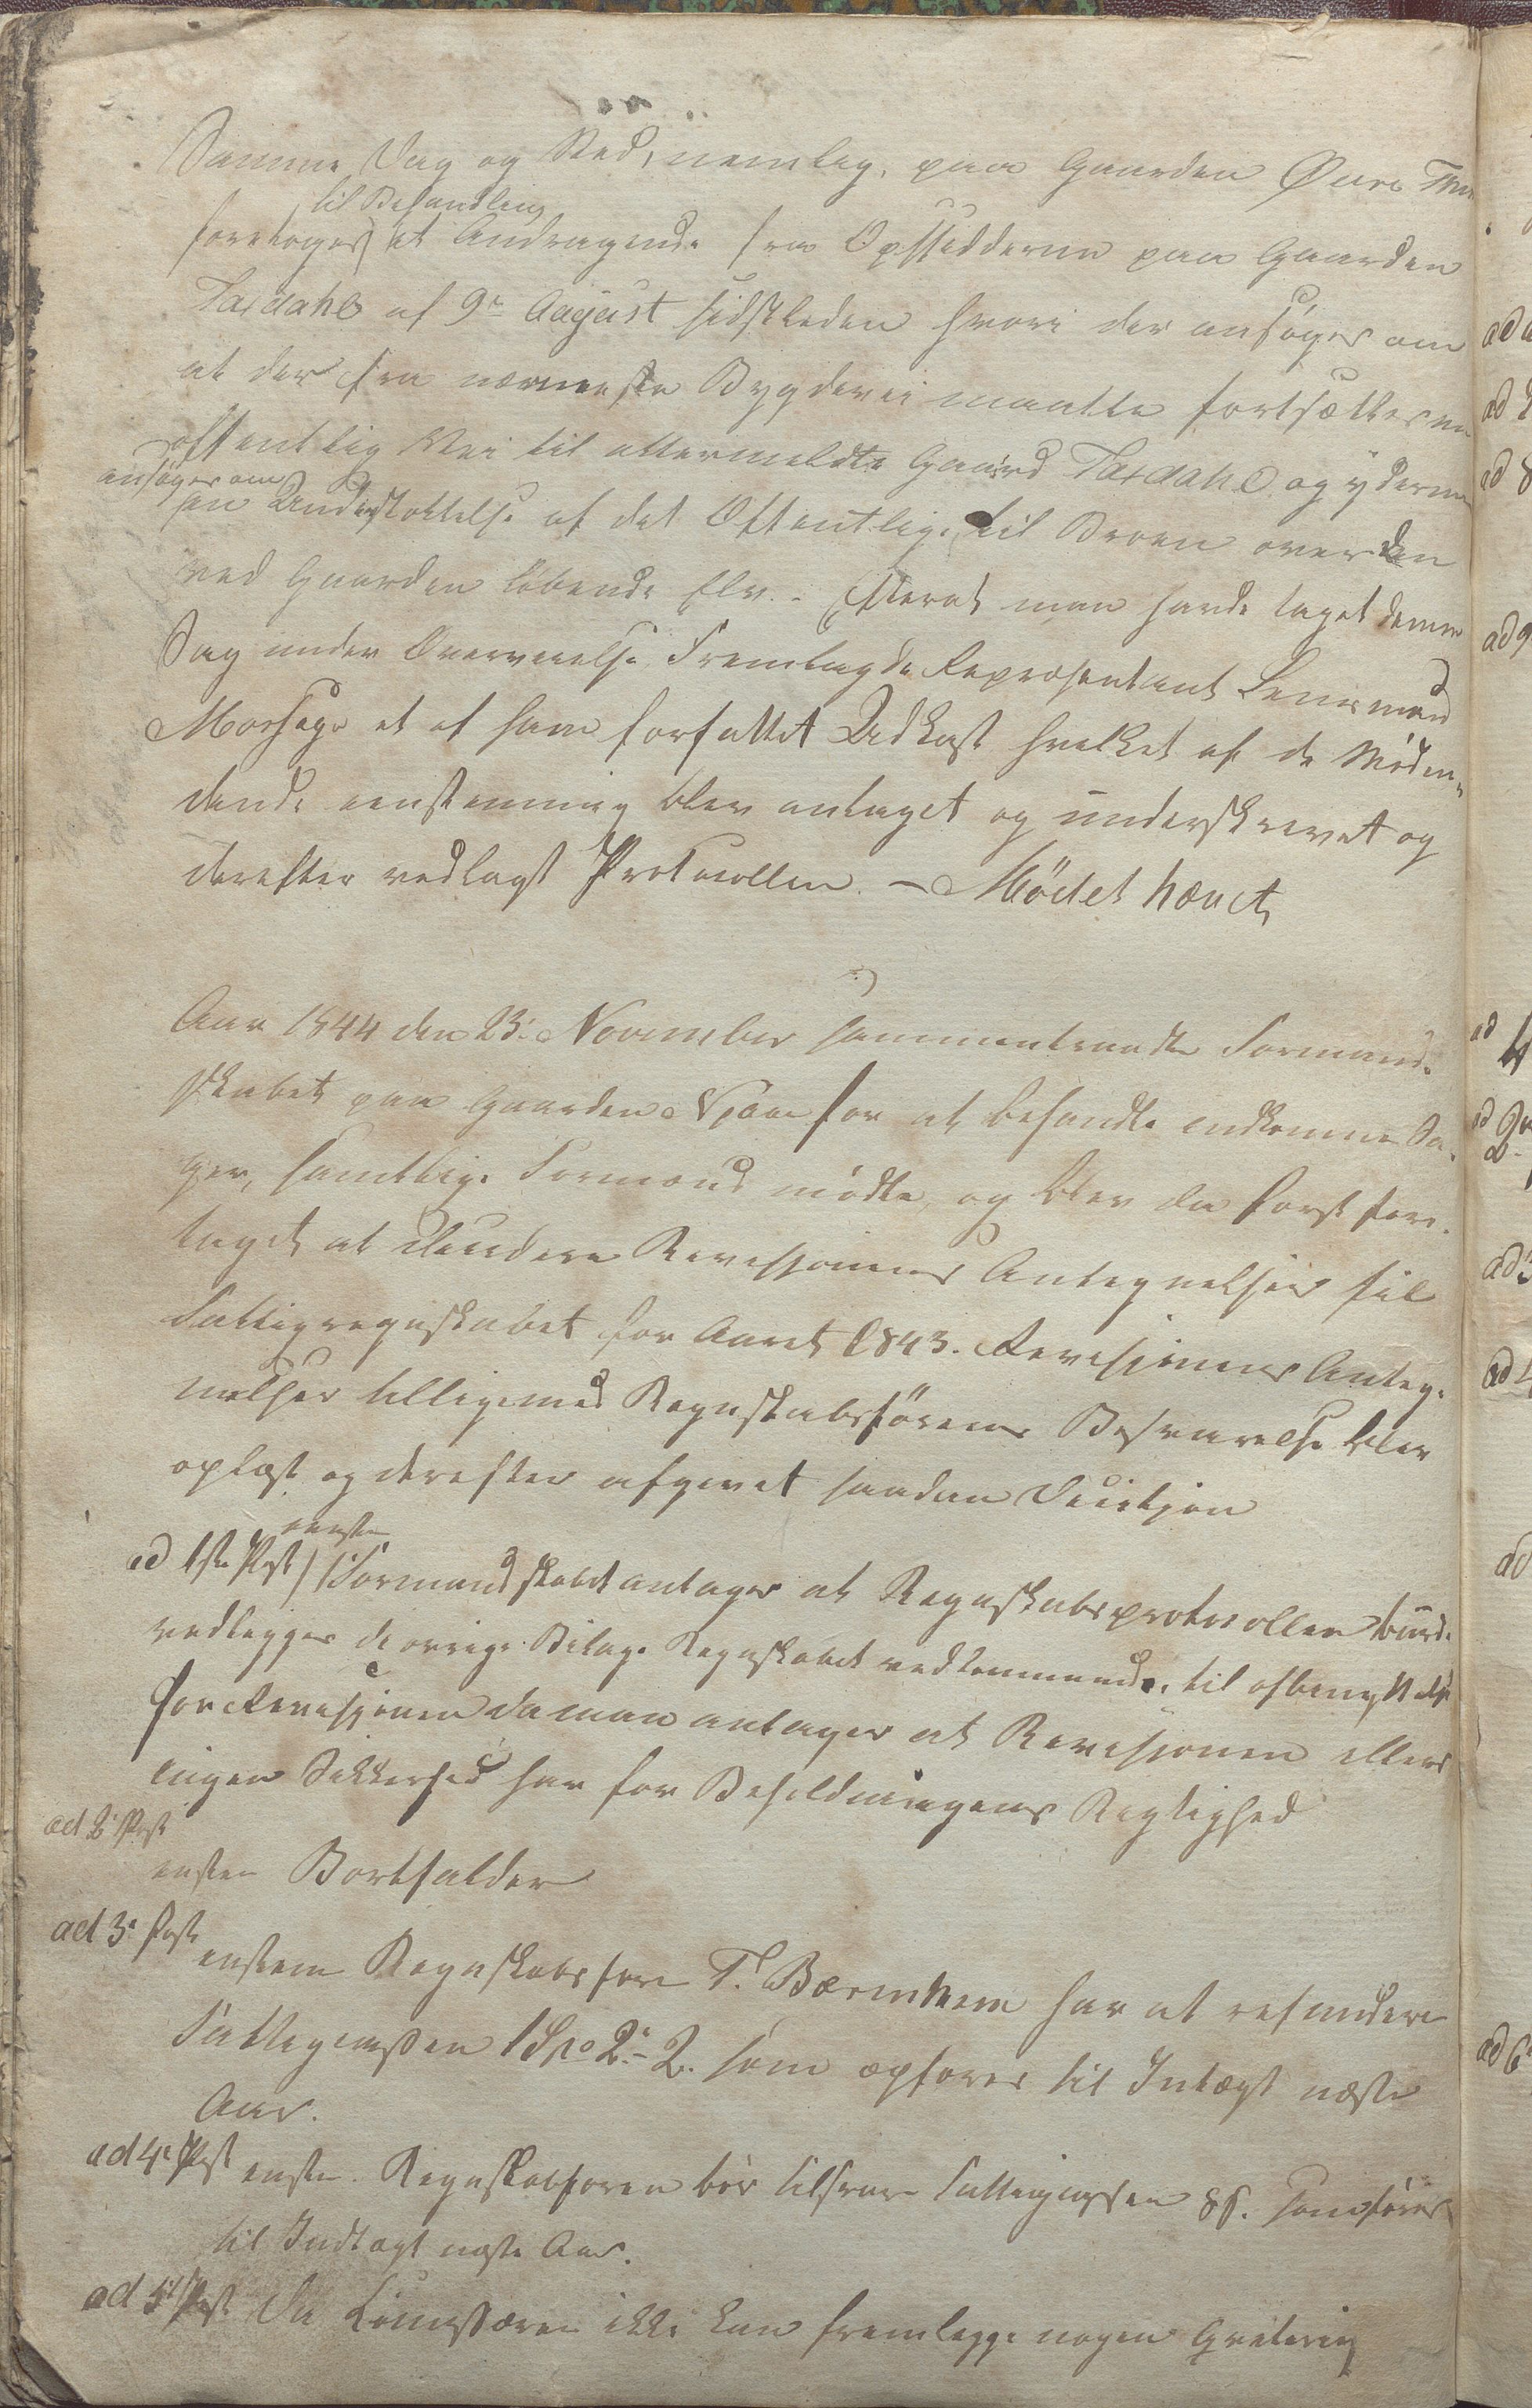 Samme Dag og Sted, nemlig paa Gaarden Øvre
til Behandling
foretoges et Andragende fra Opsidderne paa Gaarden
Taxdahl af 9de August sidstleden hvori der ansøges om
at der fra nærmeste Bygdevei maatte fortsættes en
offentlig Vei til ovenmeldte Gaard Taxdahl og yderme
ansøges om
en Understøttelse af det Offentlige til Broen over den
ved Gaarden løbende Elv. - Efterat man havde taget denne
Sag under Overveielse Fremlagde Repræsentant Lensmand
et af ham forfattet Udkast hvilket af de Møden-
dende eenstemmig blev antaget og underskrevet og
derefter vedlagt Protocollen. - Mødet hævet
Aar 1844 den 23. November sammentraadte Formand-
skabet paa Gaarden for at behandle indkomne Sa-
ger, samtlige Formænd mødte, og blev da først fore-
taget at decidere Revisjonens Antegnelser til
Fattigregnskabet for Aaret 1843. Revisjonens Anteg-
nelser tilligemed Regnskabsførerens Besvarelse blev
oplæst og derefter afgivet saadan Decisjon
eenst.
ad 1ste Post Formandskabet antager at Regnskabsprotocollen burde
vedlegges de øvrige Bilage Regnskabet vedkommende, til afbenyttelse
for Revisjonen da man antager at Revisjonen ellers
ingen Sikkerhed har for Beholdningens Rigtighed
ad 2. Post
enstem Bortfalder
ad 3. Post
enstem Regnskabsfører T. har at refundere
Fattigcassen 1 Spd 2 - 2. som opføres til Indtægt næste
Aar.
ad 4. Post enst. Regnskabsføreren bør tilsvare Fattigcassen 8 s. som føres
til Indtægt næste Aar.
ad 5. Post Da ikke kan fremlegge nogen Qvitering